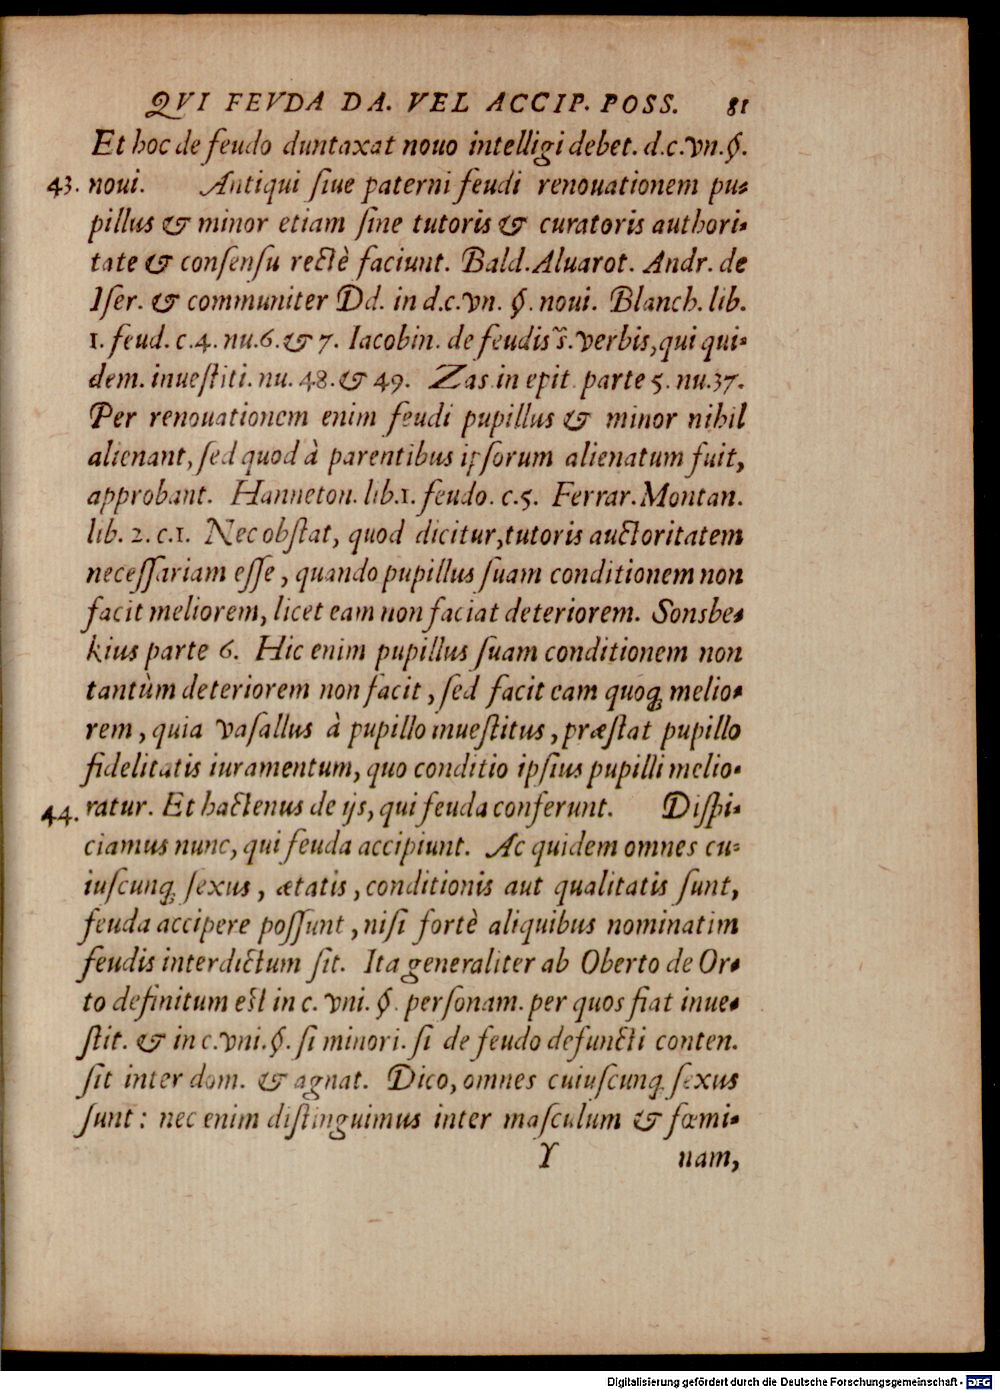 QVI FEVDA DA. VEL ACCIP. POSS. 81
Et hoc de feudo duntaxat nouo intelligi debet. d.c.vn.§.
43. noui. Antiqui ſiue paterni feudi renouationem pu-
pillus & minor etiam ſine tutoris & curatoris authori-
tate & conſenſu rectè faciunt. Bald. Aluarot. Andr. de
Iſer. & communiter Dd. in d.c.vn. §. noui. Blanch. lib.
1. feud. c.4. nu.6. & 7. Iacobin. de feudis verbis, qui qui-
dem. inueſtiti. nu. 48. & 49. Zas in epit. parte 5. nu.37.
Per renouationem enim feudi pupillus & minor nihil
alienant, ſed quod à parentibus ipſorum alienatum fuit,
approbant. Hanneton. lib.1. feudo. c.5. Ferrar. Montan.
lib. 2. c.1. Nec obſtat, quod dicitur, tutoris auctoritatem
neceſſariam eſſe, quando pupillus ſuam conditionem non
facit meliorem, licet eam non faciat deteriorem. Sonsbe-
kius parte 6. Hic enim pupillus ſuam conditionem non
tantùm deteriorem non facit, ſed facit eam quoq; melio-
rem, quia vaſallus à pupillo inueſtitus, præſtat pupillo
fidelitatis iuramentum, quo conditio ipſius pupilli melio-
44. ratur. Et hactenus de ijs, qui feuda conferunt. Diſpi-
ciamus nunc, qui feuda accipiunt. Ac quidem omnes cu-
iuſcunq; ſexus, ætatis, conditionis aut qualitatis ſunt,
feuda accipere poſſunt, niſi fortè aliquibus nominatim
feudis interdictum ſit. Ita generaliter ab Oberto de Or-
to definitum eſt in c. vni. §. perſonam. per quos fiat inue-
ſtit. & in c. vni. §. ſi minori. ſi de feudo defuncti conten.
ſit inter dom. & agnat. Dico, omnes cuiuſcunq; ſexus
ſunt: nec enim diſtinguimus inter maſculum & fœmi-
Y nam,
Digitalisierung gefördert durch die Deutsche Forschungsgemeinschaft - DFG